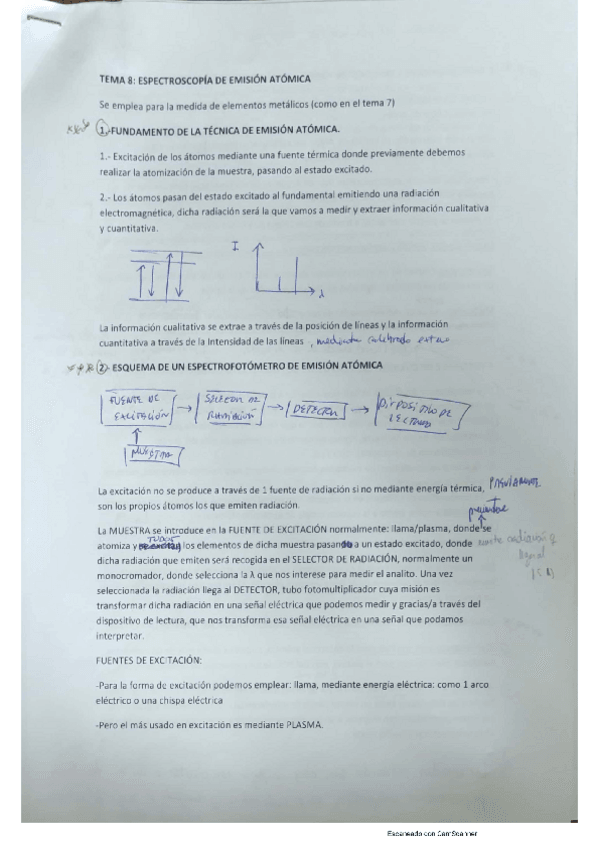 TEMA 8: ESPECTROSCOPÍA DE EMISIÓN ATÓMICA
Se emplea para la medida de elementos metálicos (como en el tema 7)
1.-FUNDAMENTO DE LA TÉCNICA DE EMISIÓN ATÓMICA.
1.- Excitación de los átomos mediante una fuente térmica donde previamente debemos
realizar la atomización de la muestra, pasando al estado excitado.
2.- Los átomos pasan del estado excitado al fundamental emitiendo una radiación
electromagnética, dicha radiación será la que vamos a medir y extraer información cualitativa
y cuantitativa.
I
λ
La información cualitativa se extrae a través de la posición de líneas y la información
cuantitativa a través de la Intensidad de las líneas , mediante calibrado externo
2- ESQUEMA DE UN ESPECTROFOTÓMETRO DE EMISIÓN ATÓMICA
FUENTE DE EXCITACIÓN
SELECTOR DE RADIACIÓN
DETECTOR
DISPOSITIVO DE LECTURA
MUESTRA
La excitación no se produce a través de 1 fuente de radiación si no mediante energía térmica, PREVIAMENTE
son los propios átomos los que emiten radiación.
La MUESTRA se introduce en la FUENTE DE EXCITACIÓN normalmente: llama/plasma, donde se
atomiza y TODOS los elementos de dicha muestra pasando a un estado excitado, donde
dicha radiación que emiten será recogida en el SELECTOR DE RADIACIÓN, normalmente un
monocromador, donde selecciona la λ que nos interese para medir el analito. Una vez
seleccionada la radiación llega al DETECTOR, tubo fotomultiplicador cuya misión es
transformar dicha radiación en una señal eléctrica que podemos medir y gracias/a través del
dispositivo de lectura, que nos transforma esa señal eléctrica en una señal que podamos
interpretar.
FUENTES DE EXCITACIÓN:
-Para la forma de excitación podemos emplear: llama, mediante energía eléctrica: como 1 arco
eléctrico o una chispa eléctrica
-Pero el más usado en excitación es mediante PLASMA.
Escaneado con CamScanner